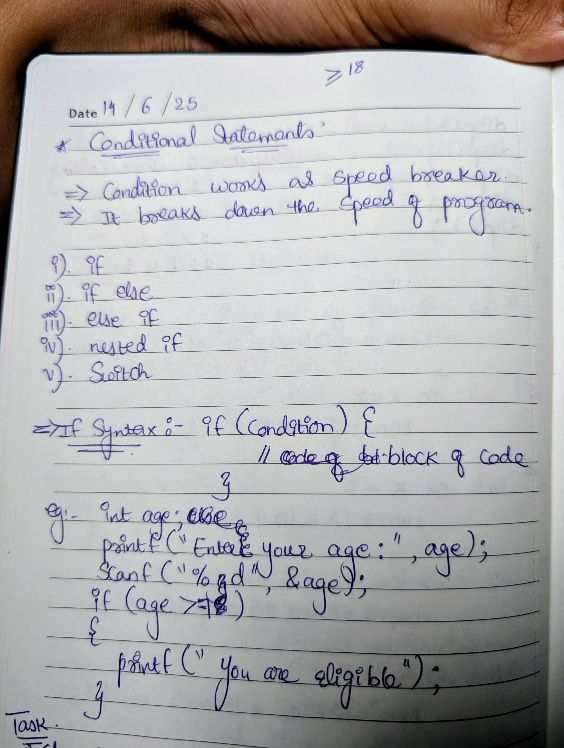 ≥ 18
Date 14 / 6 / 25
* Conditional Statements:
⇒ Condition works as speed breaker.
⇒ It breaks down the speed of program.
i). if
ii). if else
iii). else if
iv). nested if
v). Switch
⇒ If Syntax :- if (Condition) {
// block of code
}
eg:- int age;
printf ("Enter your age :", age);
Scanf ("%d", &age);
if (age >=18)
{
printf (" you are eligible");
}
Task.